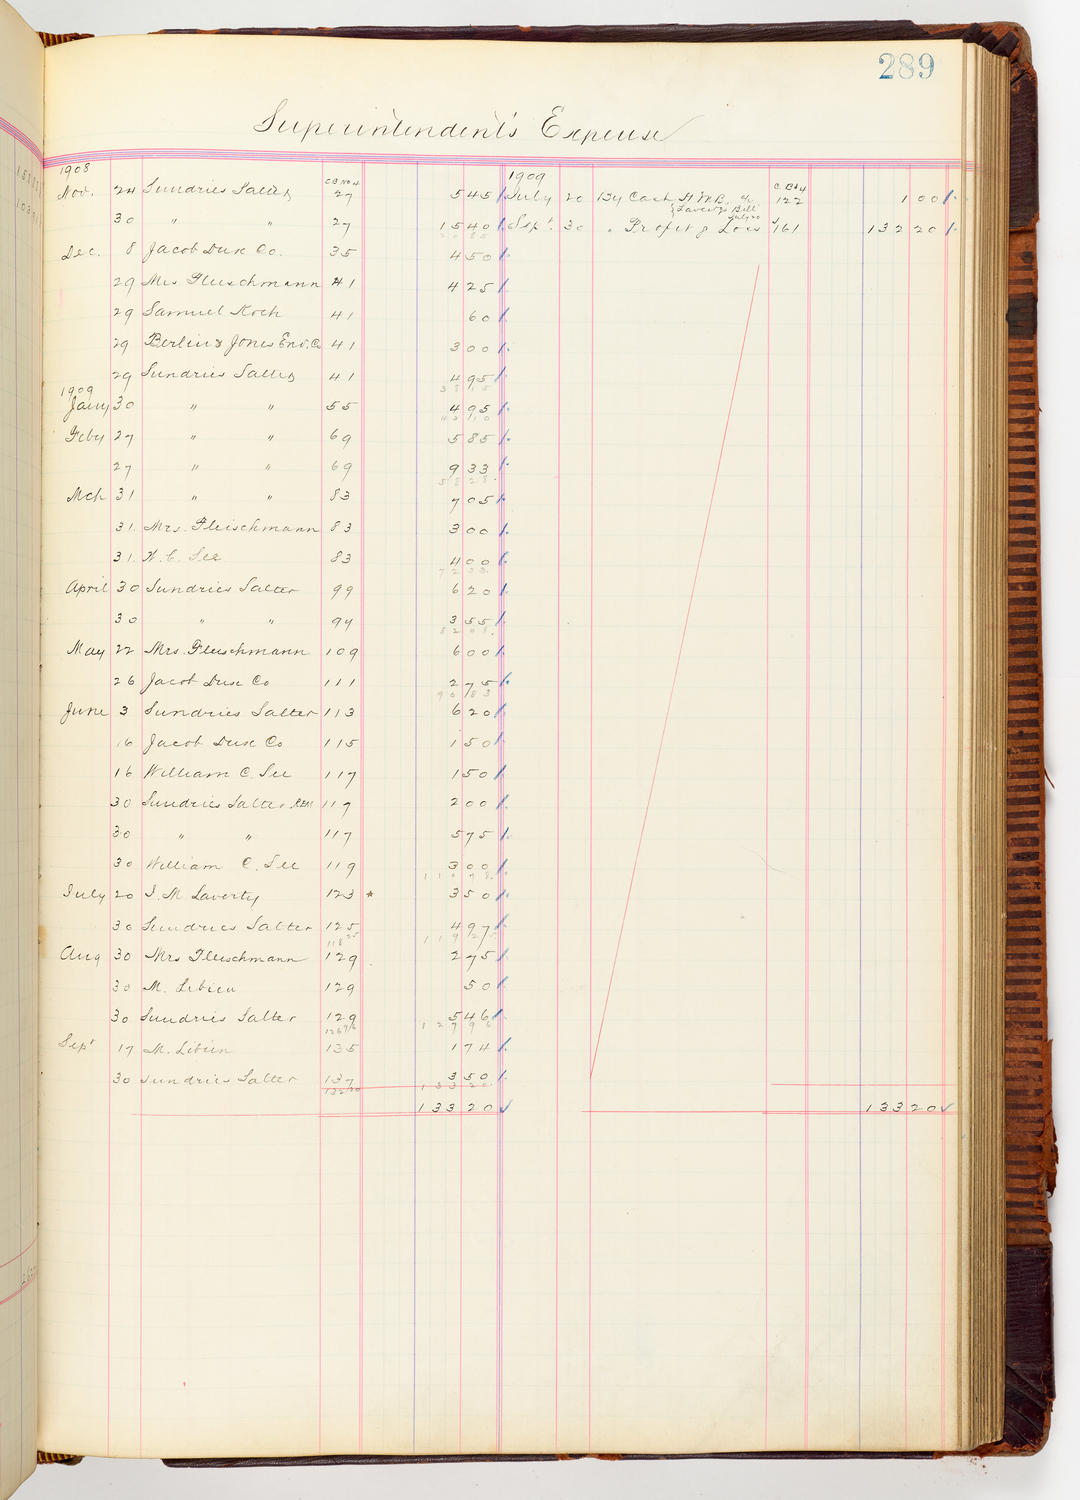 289
Superintendent's Expense
1908
C B No 4
Nov. 24 Sundries Salter 27 5 45
30 " " 27 15 40
20 85
Dec. 8 Jacob Dux Co. 35 4 50
29 Mrs Fleischmann 41 4 25
29 Samuel Koch 41 60
29 Berlin & Jones Env. Co 41 3 00
29 Sundries Salter 41 4 95
38 15
1909
Jany 30 " " 55 4 95
43 10
Feby 27 " " 69 5 85
27 " " 69 9 33
58 28
Mch 31 " " 83 7 05
31. Mrs. Fleischmann 83 3 00
31. W. C. See 83 4 00
72 33
April 30 Sundries Salter 99 6 20
30 " " 99 3 55
82 08
May 22 Mrs. Fleischmann 109 6 00
26 Jacob Dux Co 111 2 75
90 83
June 3 Sundries Salter 113 6 20
16 Jacob Dux Co 115 1 50
16 William C. See 117 1 50
30 Sundries Salter 117 2 00
30 " " 117 5 75
30 William C. See 119 3 00
110 78
July 20 J. M Laverty 123 * 3 50
30 Sundries Salter 125 4 97
118 25 119 25
Aug 30 Mrs Fleischmann 129 2 75
30 M. Libien 129 50
30 Sundries Salter 129 5 46
126 96 127 96
Sept 17 M. Libien 135 1 74
30 Sundries Salter 137 3 50
132 20 133 20
133 20
1909
C B 4
July 20 By Cash H M B, 122 1 00
Laverty's Bill
July 20
Sept. 30 " Profit & Loss J 161 132 20
133 20